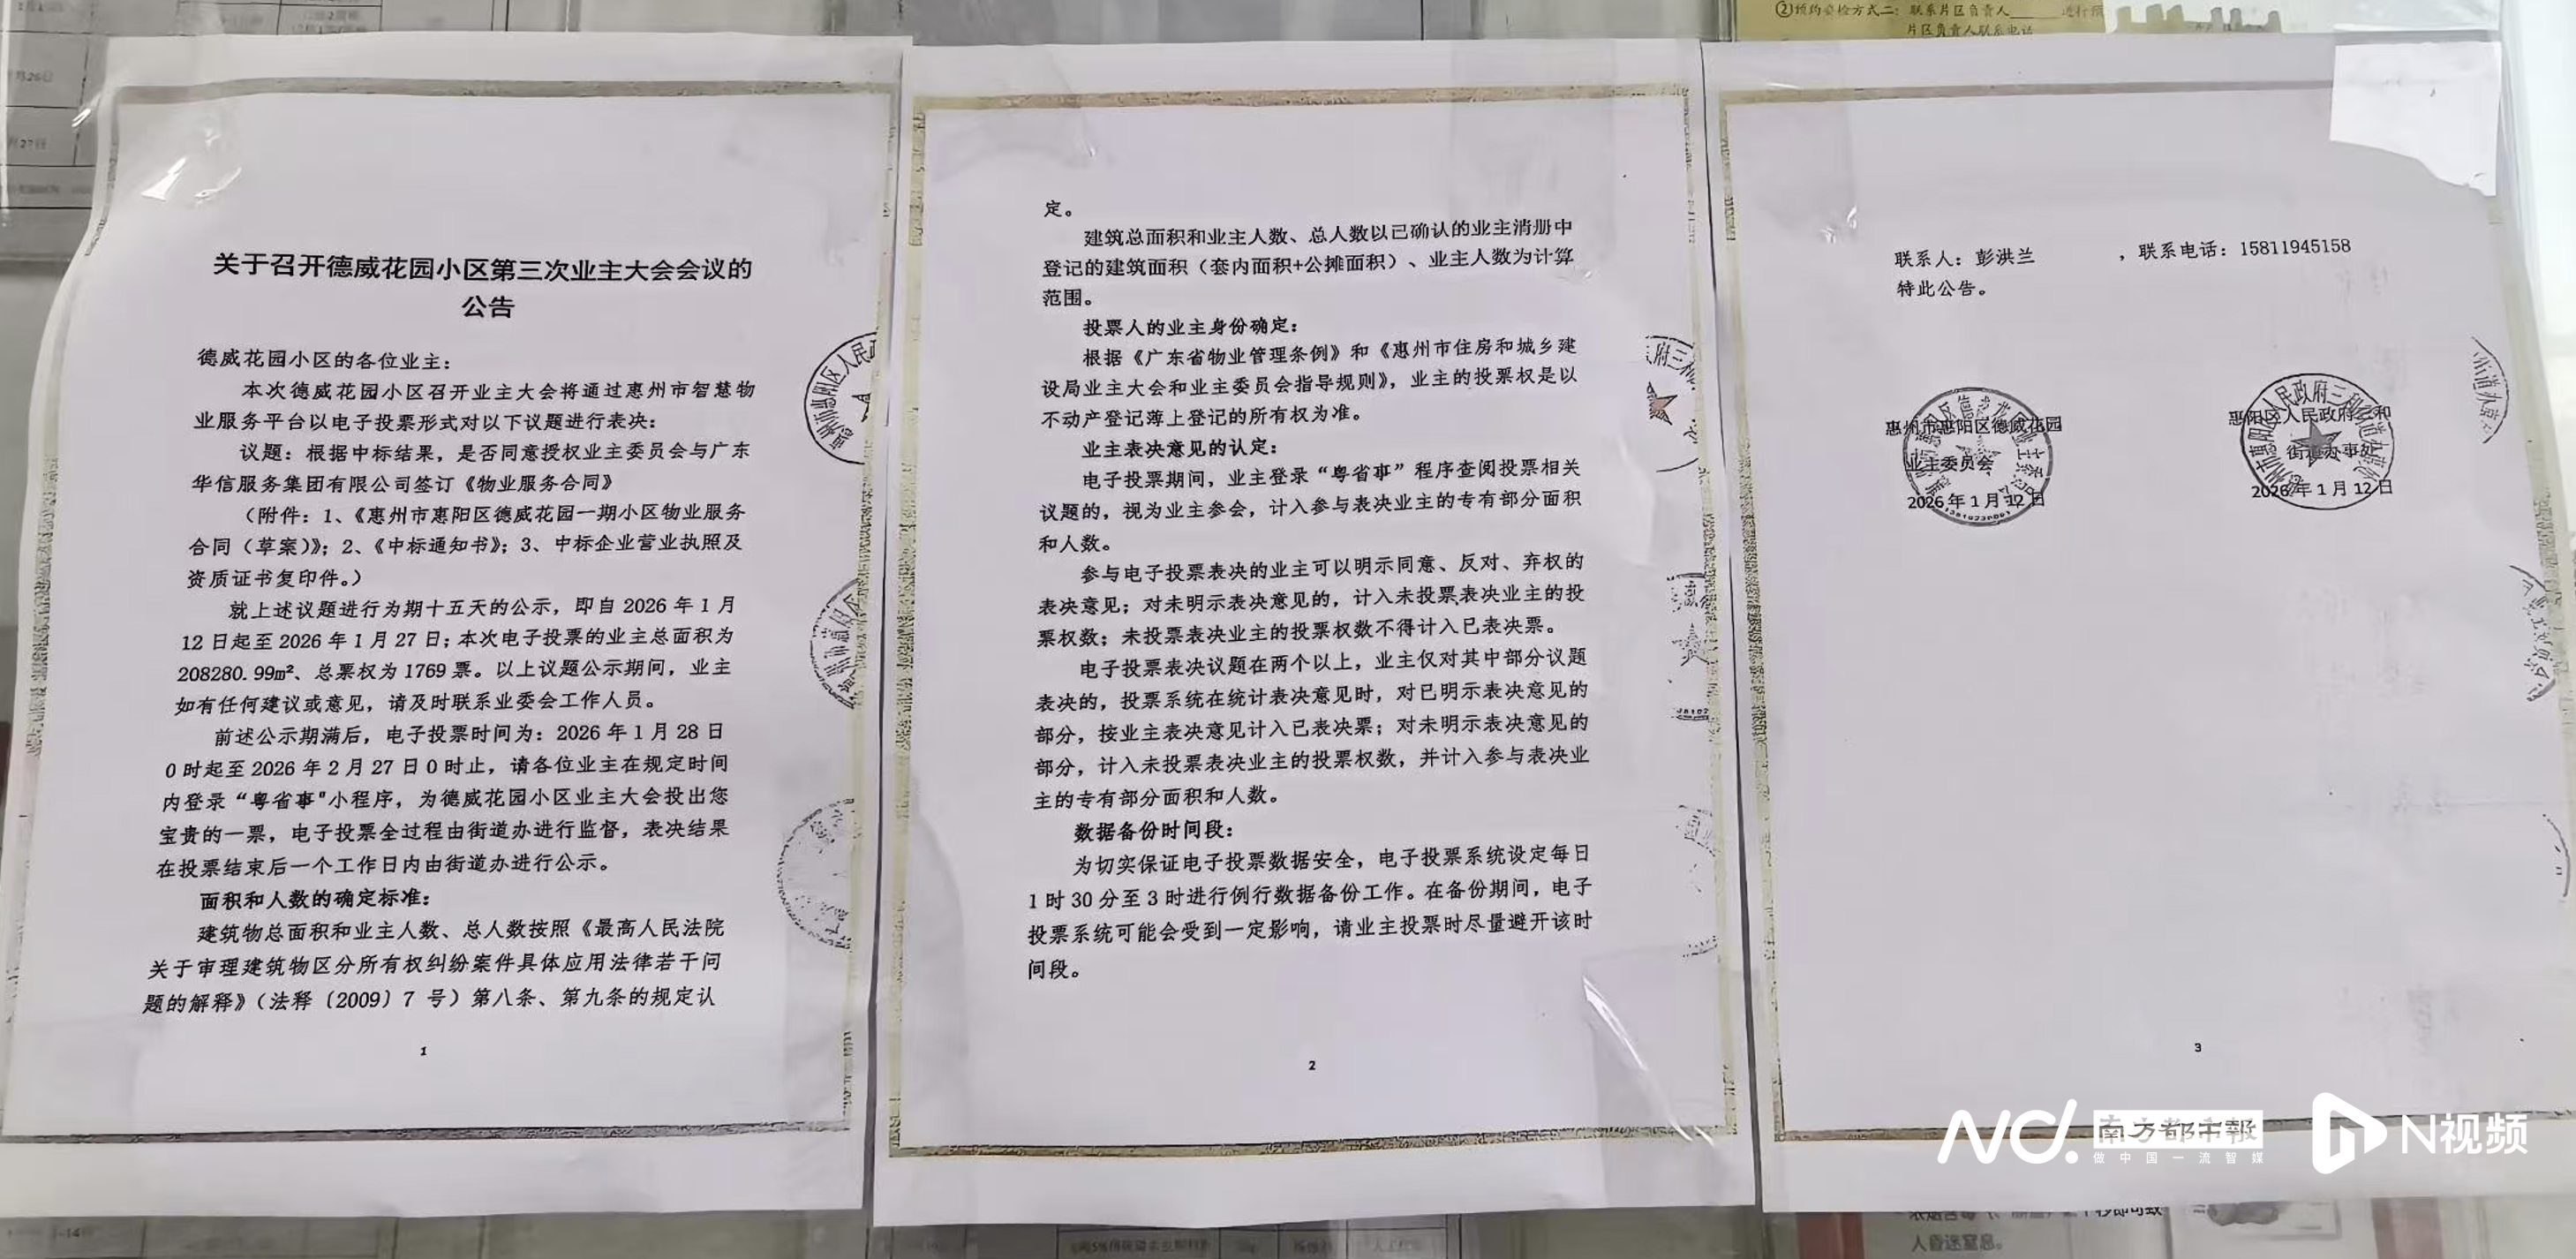 ②预约安检方式二：联系片区负责人______进行预
片区负责人联系电话
月26日
月27日
关于召开德威花园小区第三次业主大会会议的
公告
德威花园小区的各位业主：
本次德威花园小区召开业主大会将通过惠州市智慧物
业服务平台以电子投票形式对以下议题进行表决：
议题：根据中标结果，是否同意授权业主委员会与广东
华信服务集团有限公司签订《物业服务合同》
（附件：1、《惠州市惠阳区德威花园一期小区物业服务
合同（草案）》；2、《中标通知书》；3、中标企业营业执照及
资质证书复印件。）
就上述议题进行为期十五天的公示，即自 2026 年 1 月
12 日起至 2026 年 1 月 27 日；本次电子投票的业主总面积为
208280.99m²、总票权为 1769 票。以上议题公示期间，业主
如有任何建议或意见，请及时联系业委会工作人员。
前述公示期满后，电子投票时间为：2026 年 1 月 28 日
0 时起至 2026 年 2 月 27 日 0 时止，请各位业主在规定时间
内登录“粤省事"小程序，为德威花园小区业主大会投出您
宝贵的一票，电子投票全过程由街道办进行监督，表决结果
在投票结束后一个工作日内由街道办进行公示。
面积和人数的确定标准：
建筑物总面积和业主人数、总人数按照《最高人民法院
关于审理建筑物区分所有权纠纷案件具体应用法律若干问
题的解释》（法释〔2009〕7 号）第八条、第九条的规定认
1
定。
建筑总面积和业主人数、总人数以已确认的业主清册中
登记的建筑面积（套内面积+公摊面积）、业主人数为计算
范围。
投票人的业主身份确定：
根据《广东省物业管理条例》和《惠州市住房和城乡建
设局业主大会和业主委员会指导规则》，业主的投票权是以
不动产登记薄上登记的所有权为准。
业主表决意见的认定：
电子投票期间，业主登录“粤省事”程序查阅投票相关
议题的，视为业主参会，计入参与表决业主的专有部分面积
和人数。
参与电子投票表决的业主可以明示同意、反对、弃权的
表决意见；对未明示表决意见的，计入未投票表决业主的投
票权数；未投票表决业主的投票权数不得计入已表决票。
电子投票表决议题在两个以上，业主仅对其中部分议题
表决的，投票系统在统计表决意见时，对已明示表决意见的
部分，按业主表决意见计入已表决票；对未明示表决意见的
部分，计入未投票表决业主的投票权数，并计入参与表决业
主的专有部分面积和人数。
数据备份时间段：
为切实保证电子投票数据安全，电子投票系统设定每日
1 时 30 分至 3 时进行例行数据备份工作。在备份期间，电子
投票系统可能会受到一定影响，请业主投票时尽量避开该时
间段。
2
联系人：彭洪兰 ，联系电话：15811945158
特此公告。
惠州市惠阳区德威花园
业主委员会
2026 年 1 月 12 日
惠阳区人民政府三和
街道办事处
2026 年 1 月 12 日
3
南方都市报
做中国一流智媒
N视频
人昏迷窒息。